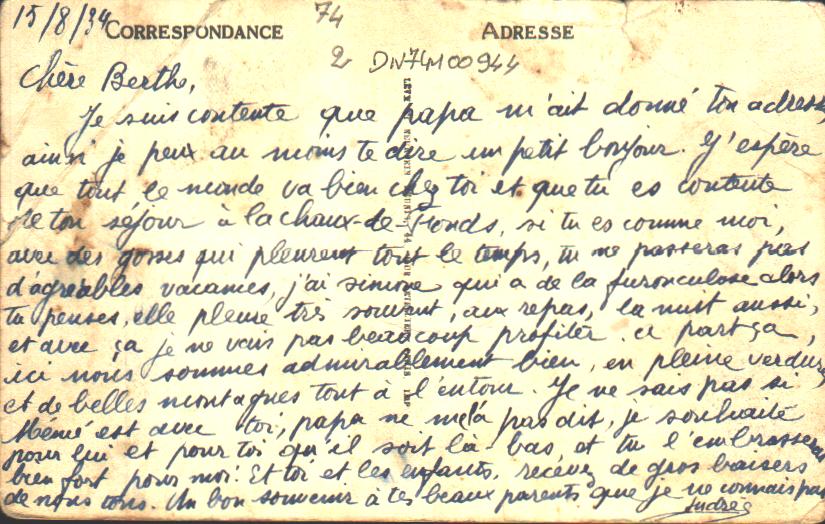 15/8/34
CORRESPONDANCE
74
ADRESSE
2 DN74M00944
Chère Berthe,
Je suis contente que papa m'ait donné ton adresse,
ainsi je peux au moins te dire un petit bonjour. J'espère
que tout le monde va bien chez toi et que tu es contente
de ton séjour à la chaux-de-Fonds, si tu es comme moi,
avec des gosses qui pleurent tout le temps, tu ne passeras pas
d'agréables vacances, j'ai simone qui a de la furonculose alors
tu penses, elle pleure très souvent, aux repas, la nuit aussi,
et avec ça je ne vais pas beaucoup profiter. a part ça,
ici nous sommes admirablement bien, en pleine verdure,
et de belles montagnes tout à l'entour. Je ne sais pas si
Mémé est avec toi, papa ne me l'a pas dit, je souhaite
pour lui et pour toi qu'il soit là-bas, et tu l'embrasseras
bien fort pour moi. Et toi et les enfants, recevez de gros baisers
de nous tous. Un bon souvenir à tes beaux parents que je ne connais pas